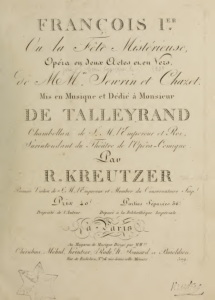 FRANÇOIS I.ER
Ou la Fête Mistérieuse,
Opéra en Deux Actes et en Vers,
De M.M.rs Sewrin et Chazet,
Mis en Musique et Dédié à Monsieur
DE TALLEYRAND
Chambellan de S. M. l'Empereur et Roi,
Surintendant du Théâtre de l'Opéra Comique
Par
R. KREUTZER
Premier Violon de S. M. l'Empereur et Membre du Conservatoire
Prix 40 Parties Séparées
Propriété de l'Auteur Déposé à la Bibliothèque Impériale
à Paris
Au Magasin de Musique
Cherubini, Méhul, Kreutzer, Rode, N. Isouard et Boieldieu